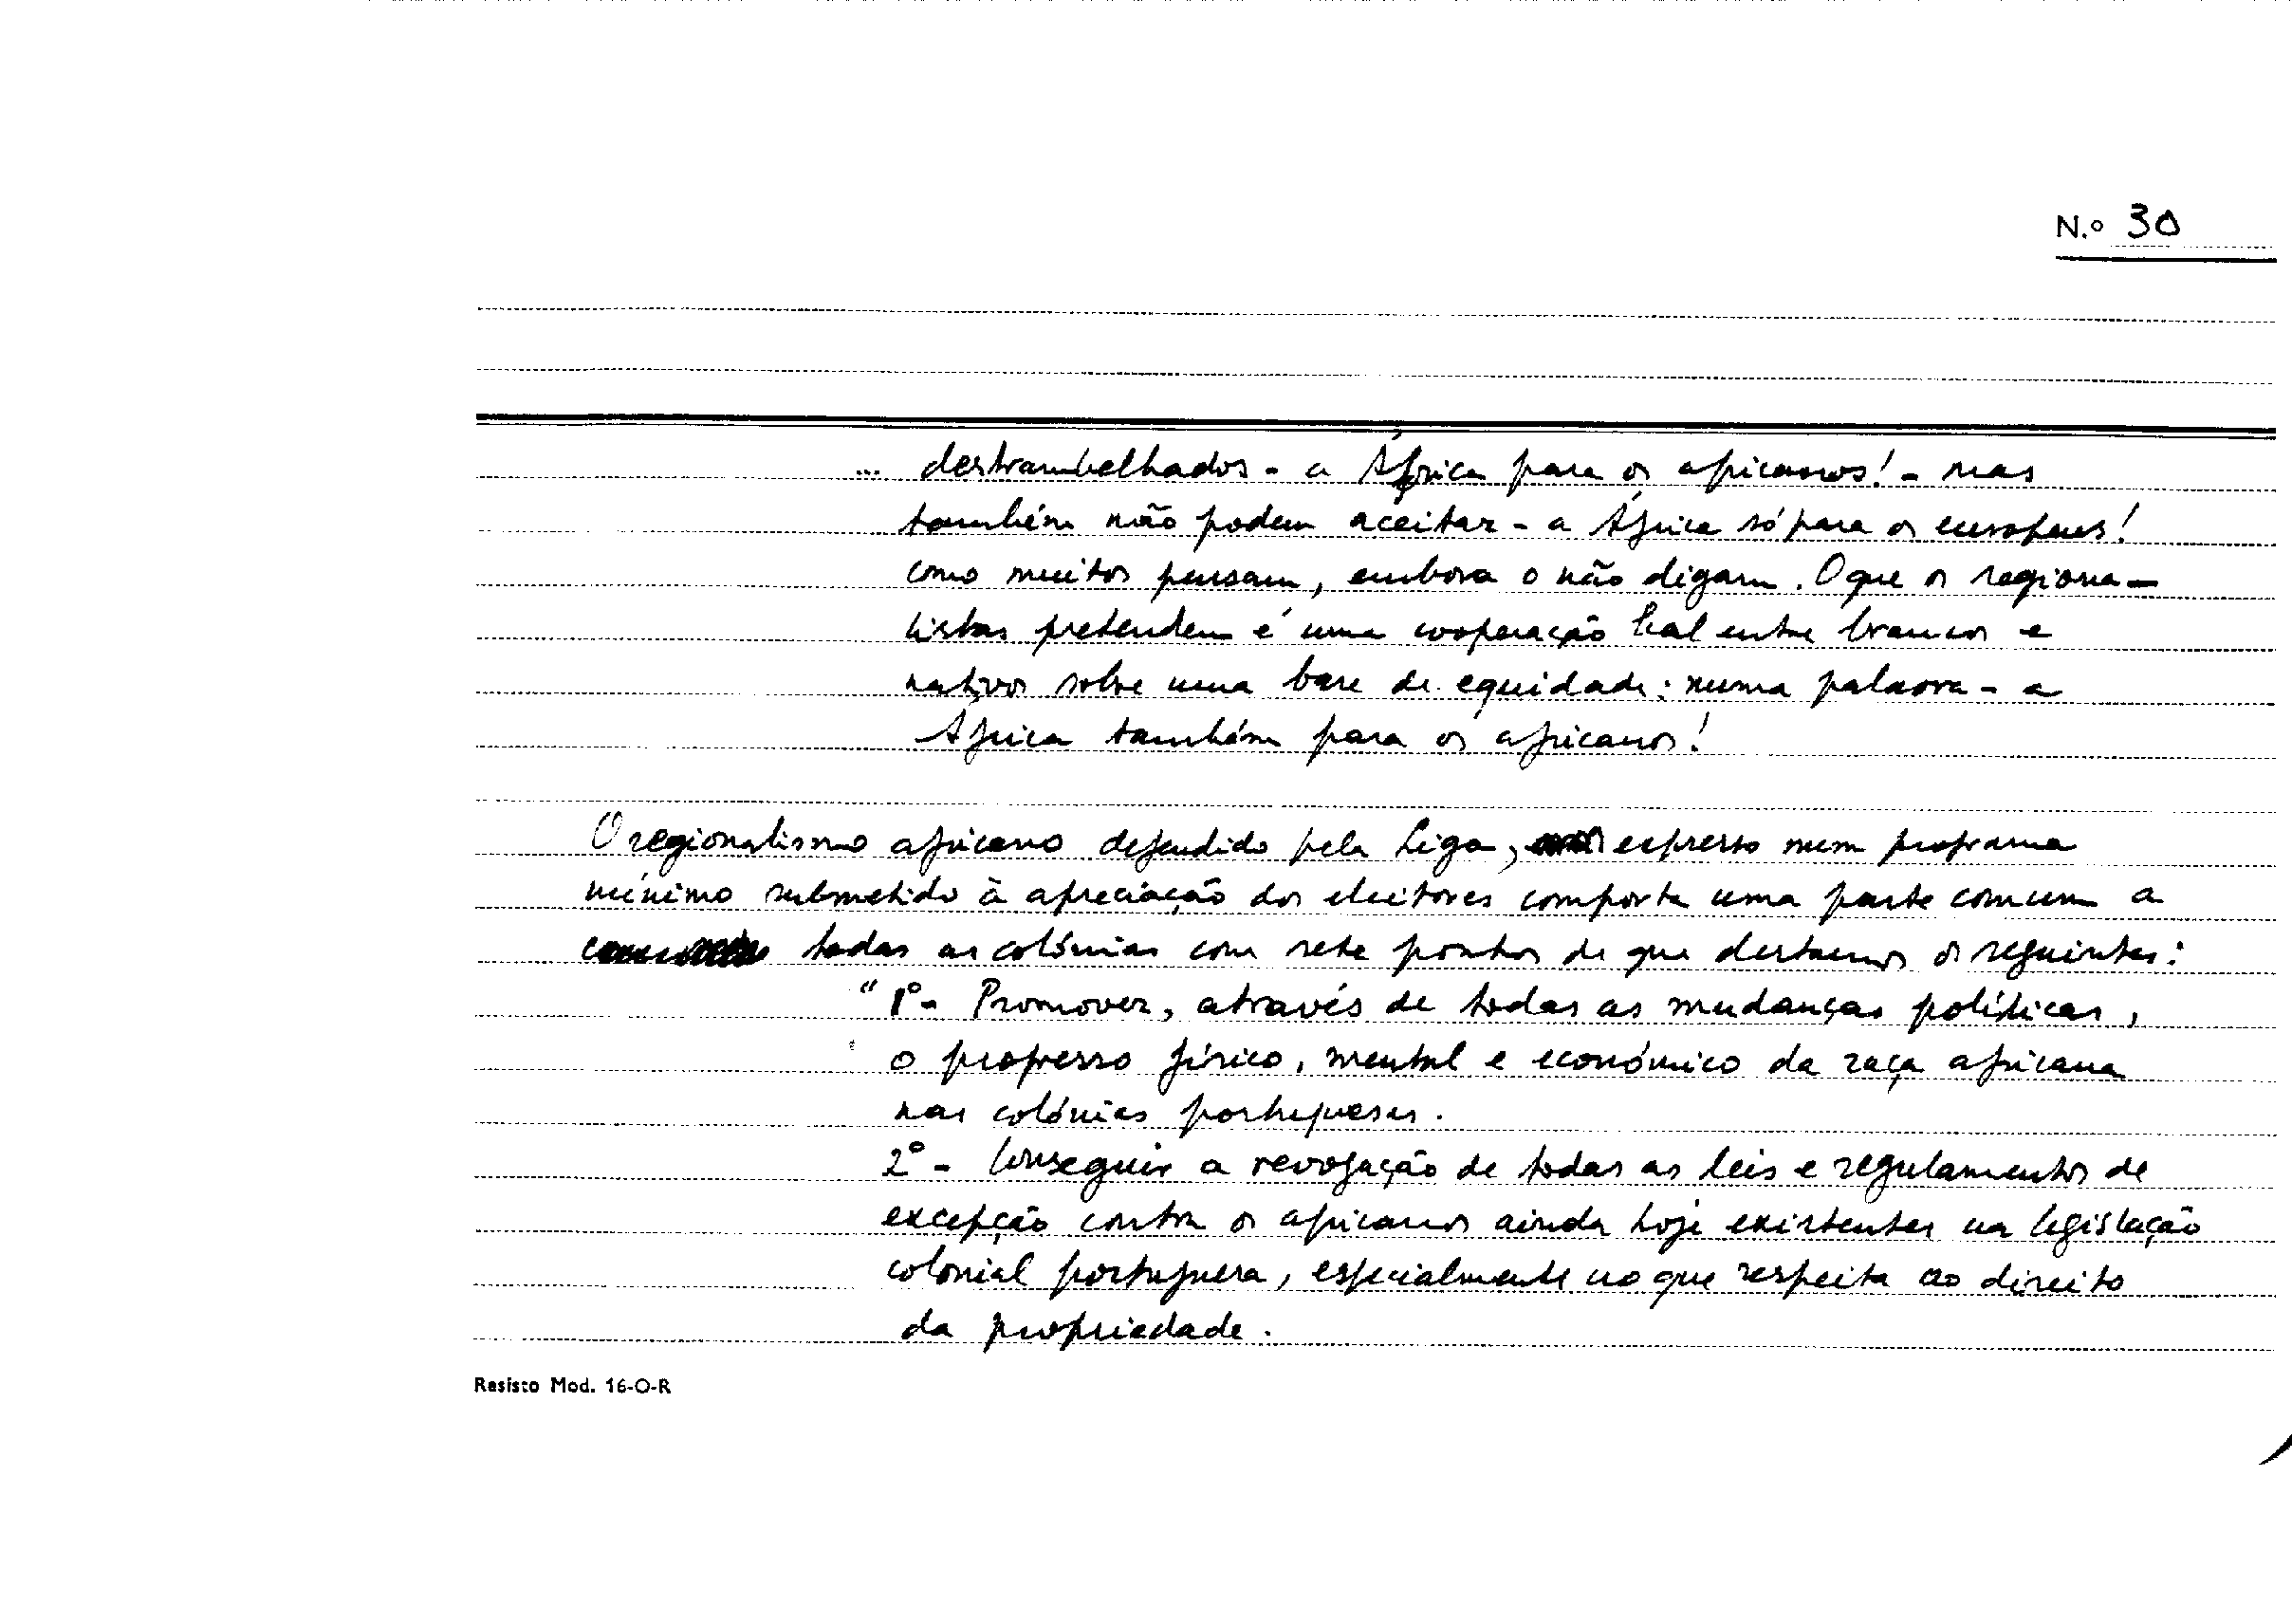 N.º 30
... destrambelhados - a África para os africanos! - mas
também não podem aceitar - a África só para os europeus!
como muitos pensam, embora o não digam. O que os regiona-
listas pretendem é uma cooperação leal entre brancos e
nativos sobre uma base de equidade: numa palavra - a
África também para os africanos!
O regionalismo africano defendido pela Liga, expresso num programa
mínimo submetido à apreciação dos eleitores comporta uma parte comum a
todas as colónias com sete pontos de que destacamos os seguintes:
"1º - Promover, através de todas as mudanças políticas,
o progresso físico, mental e económico da raça africana
nas colónias portuguesas.
2º - Conseguir a revogação de todas as leis e regulamentos de
excepção contra os africanos ainda hoje existentes na legislação
colonial portuguesa, especialmente no que respeita ao direito
da propriedade.
Resisto Mod. 16-O-R